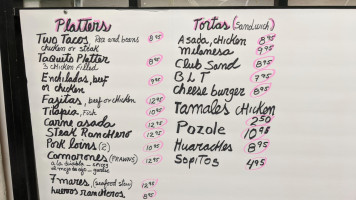 Platters
Two Tacos Rice and beans 8.95
chicken or steak
Taquito Platter 8.95
3 chicken filled
Enchiladas, beef 9.95
or chicken
Fajitas, beef or chicken 12.95
Tilapia, Fish 10.95
Carne asada 12.95
Steak Ranchero 12.95
Pork loins (2) 10.95
Camarones (PRAWNS) 12.95
a la diabla - spicy
al mojo de ajo - garlic
7 mares, (seafood stew) 12.95
huevos rancheros 8.95
Tortas (Sandwich)
Asada, chicken 8.95
milanesa 9.95
Club Sand 8.95
B L T 7.95
cheese burger 8.95
Tamales chicken
2.50
Pozole 10.98
Huaraches 8.95
Sopitos 4.95